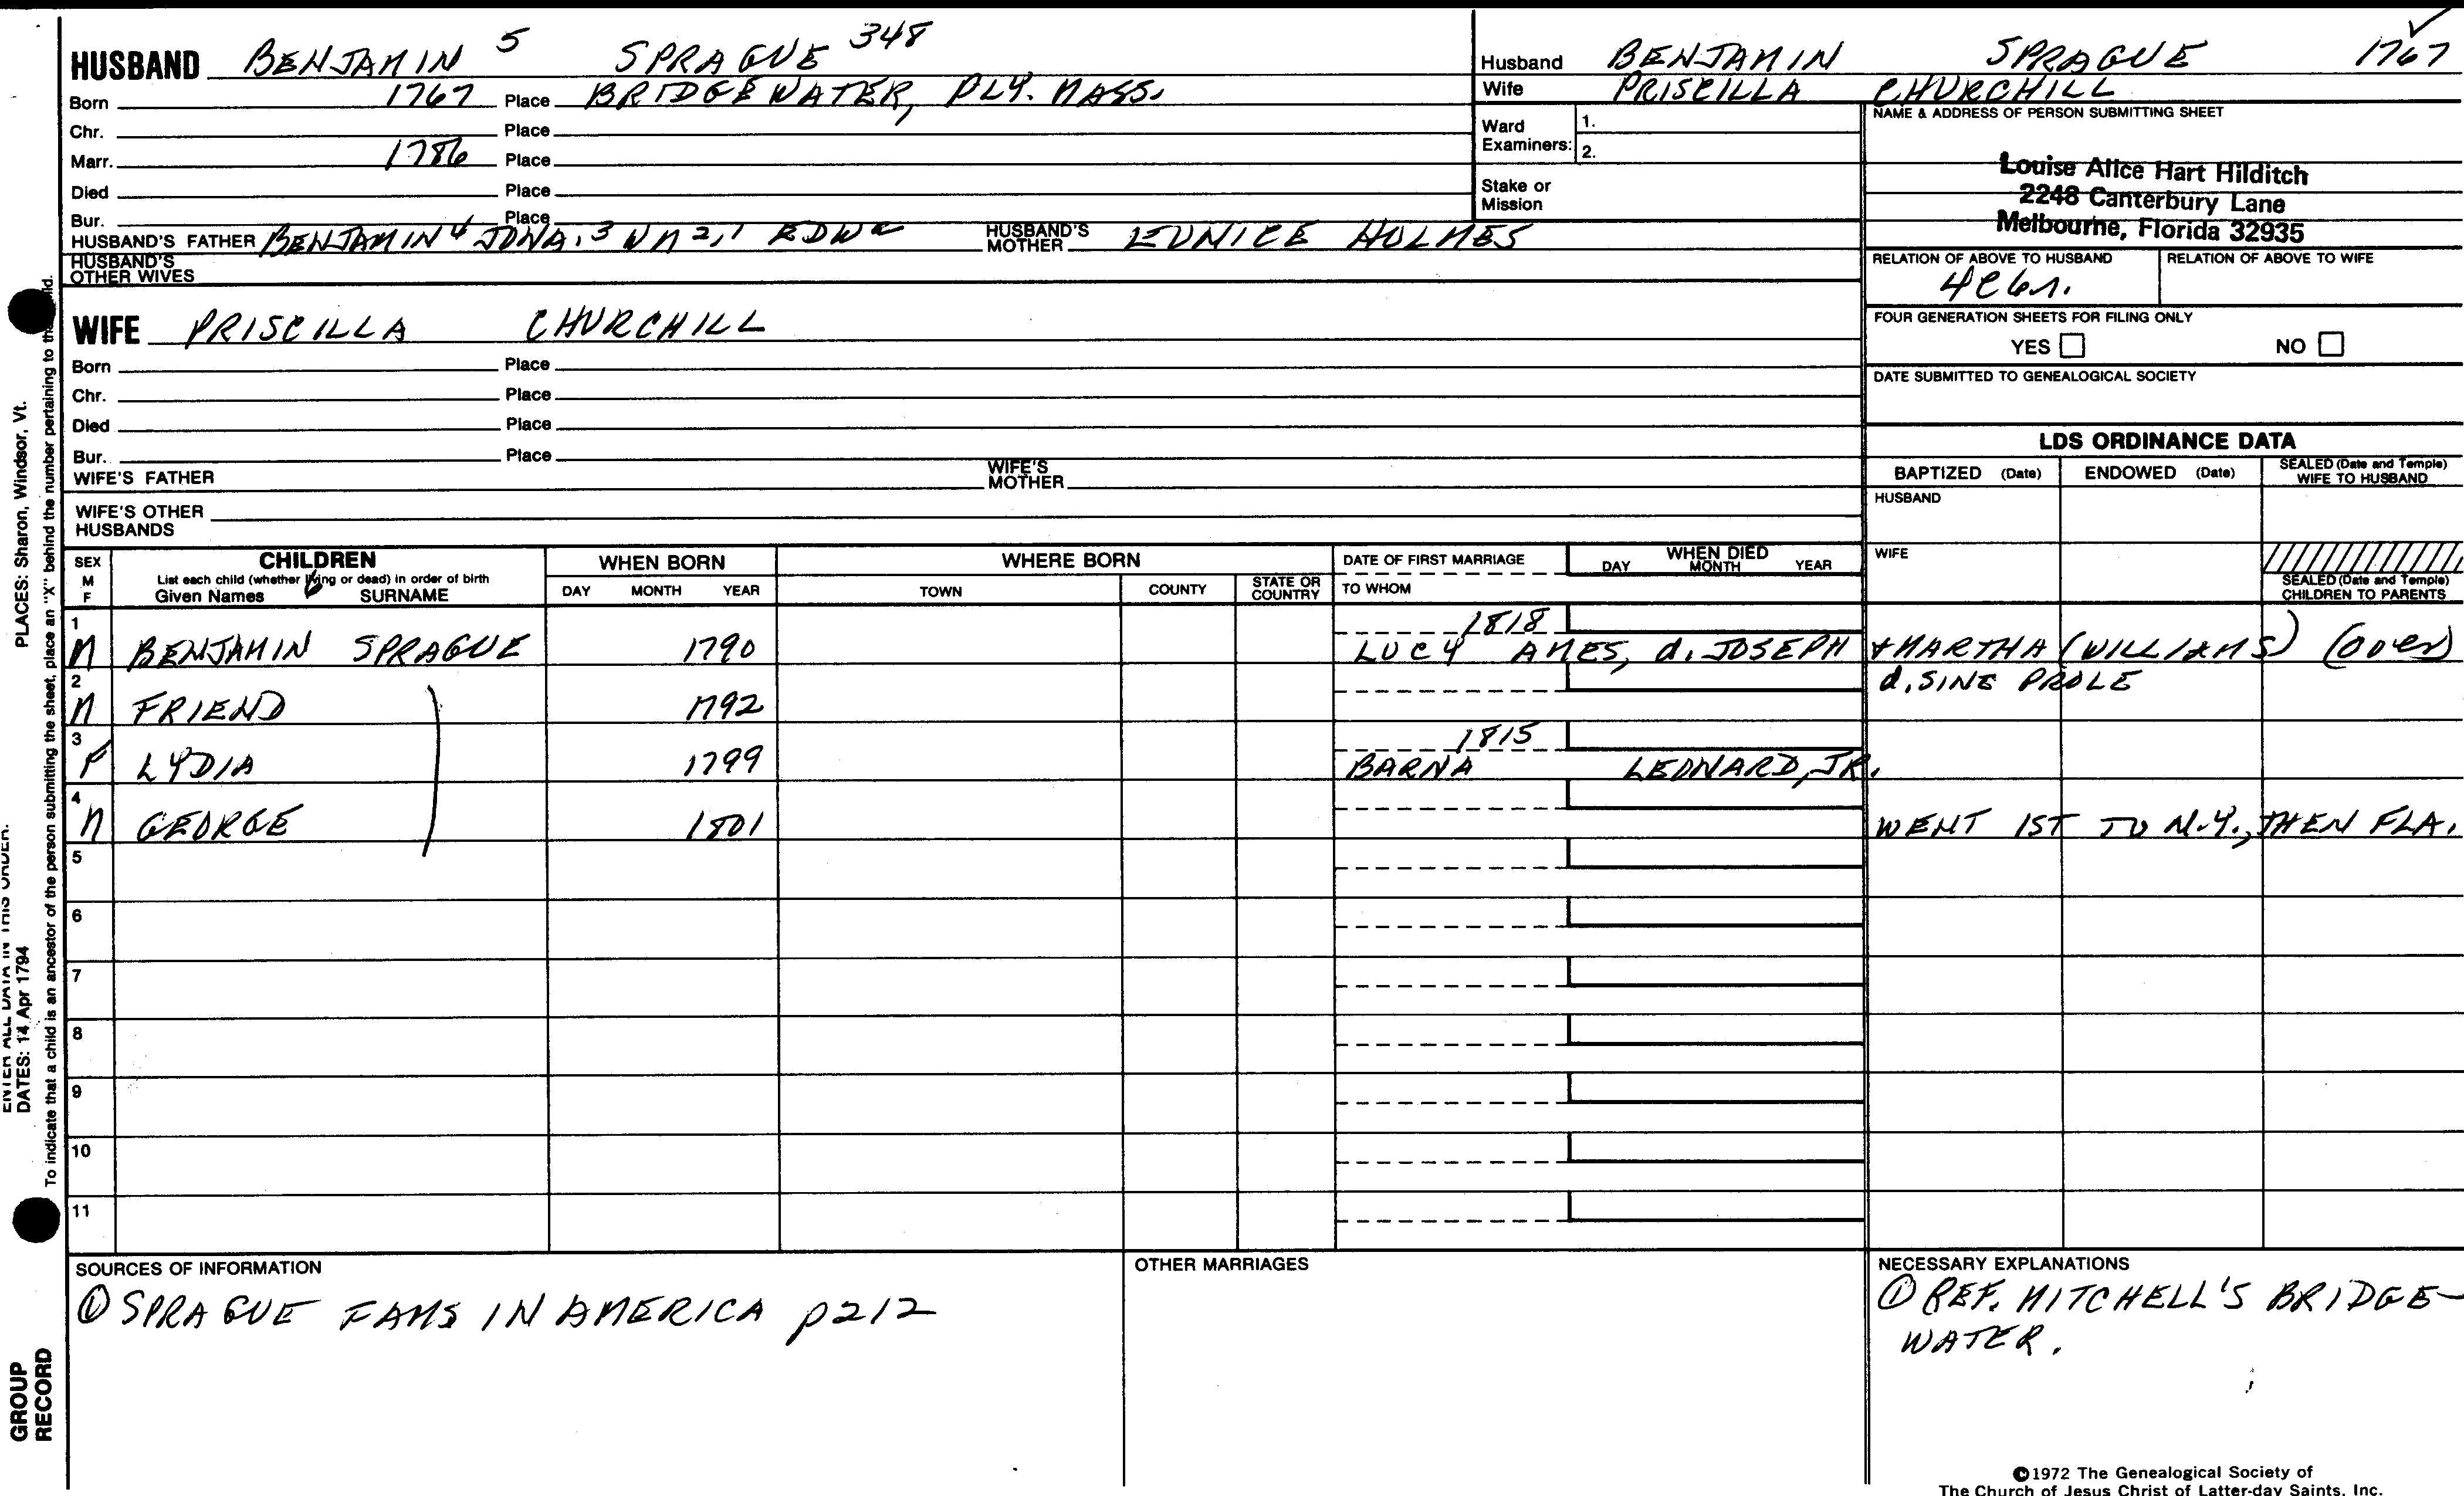 HUSBAND BENJAMIN 5 SPRAGUE 348
Born 1767 Place BRIDGEWATER, PLY. MASS.
Chr. Place
Marr. 1786 Place
Died Place
Bur. Place
HUSBAND'S FATHER BENJAMIN 4 JONA. 3 WM 2, 1 EDWD HUSBAND'S MOTHER EUNICE HOLMES
HUSBAND'S OTHER WIVES
WIFE PRISCILLA CHURCHILL
Born Place
Chr. Place
Died Place
Bur. Place
WIFE'S FATHER WIFE'S MOTHER
WIFE'S OTHER HUSBANDS
Husband BENJAMIN SPRAGUE 1767
Wife PRISCILLA CHURCHILL
Ward Examiners: 1.
2.
Stake or Mission
NAME & ADDRESS OF PERSON SUBMITTING SHEET
Louise Alice Hart Hilditch
2248 Canterbury Lane
Melbourne, Florida 32935
RELATION OF ABOVE TO HUSBAND RELATION OF ABOVE TO WIFE
4C6r.
FOUR GENERATION SHEETS FOR FILING ONLY
YES NO
DATE SUBMITTED TO GENEALOGICAL SOCIETY
LDS ORDINANCE DATA
BAPTIZED (Date) ENDOWED (Date) SEALED (Date and Temple) WIFE TO HUSBAND
HUSBAND
WIFE
SEALED (Date and Temple) CHILDREN TO PARENTS
SEX M F
CHILDREN
List each child (whether living or dead) in order of birth
Given Names 6 SURNAME
WHEN BORN
DAY MONTH YEAR
WHERE BORN
TOWN COUNTY STATE OR COUNTRY
DATE OF FIRST MARRIAGE
TO WHOM
WHEN DIED
DAY MONTH YEAR
1 1818
M BENJAMIN SPRAGUE 1790 LUCY AMES, d. JOSEPH + MARTHA (WILLIAMS) (over)
2 d. SINE PROLE
M FRIEND 1792
3 1815
F LYDIA 1799 BARNA LEONARD, JR.
4
M GEORGE 1801 WENT 1ST TO N.Y., THEN FLA.
5
6
7
8
9
10
11
SOURCES OF INFORMATION
① SPRAGUE FAMS IN AMERICA p212
OTHER MARRIAGES
NECESSARY EXPLANATIONS
① REF. MITCHELL'S BRIDGE-
WATER.
©1972 The Genealogical Society of
The Church of Jesus Christ of Latter-day Saints, Inc.
PLACES: Sharon, Windsor, Vt.
ENTER ALL DATA IN THIS ORDER.
DATES: 14 Apr 1794
To indicate that a child is an ancestor of the person submitting the sheet, place an "X" behind the number pertaining to the child.
GROUP
RECORD